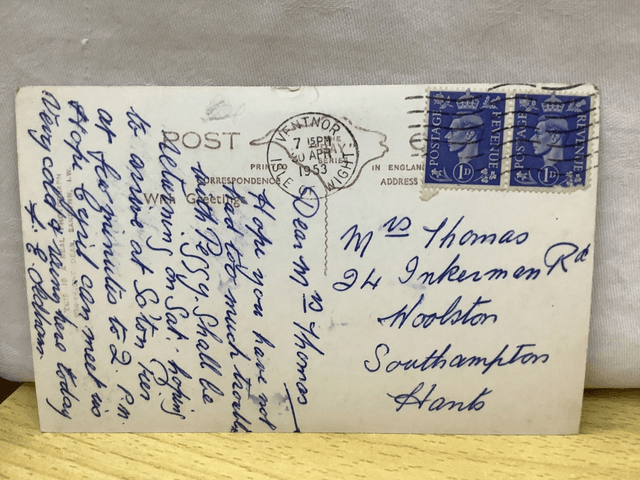 POST
PRINTED
IN ENGLAND
CORRESPONDENCE
ADDRESS
With Greetings
VENTNOR
7 15PM
30 APR
1953
ISLE OF WIGHT
POSTAGE
REVENUE
1D
POSTAGE
REVENUE
1D
Dear Mrs Thomas
Hope you have not
had too much trouble
with Peggy. Shall be
returning on Sat. hoping
to arrive at S'oton Pier
at few minutes to 2. P.m.
Hope Cyril can meet us
Very cold & windy here today
Mrs Thomas
24 Inkerman Rd
Woolston
Southampton
Hants